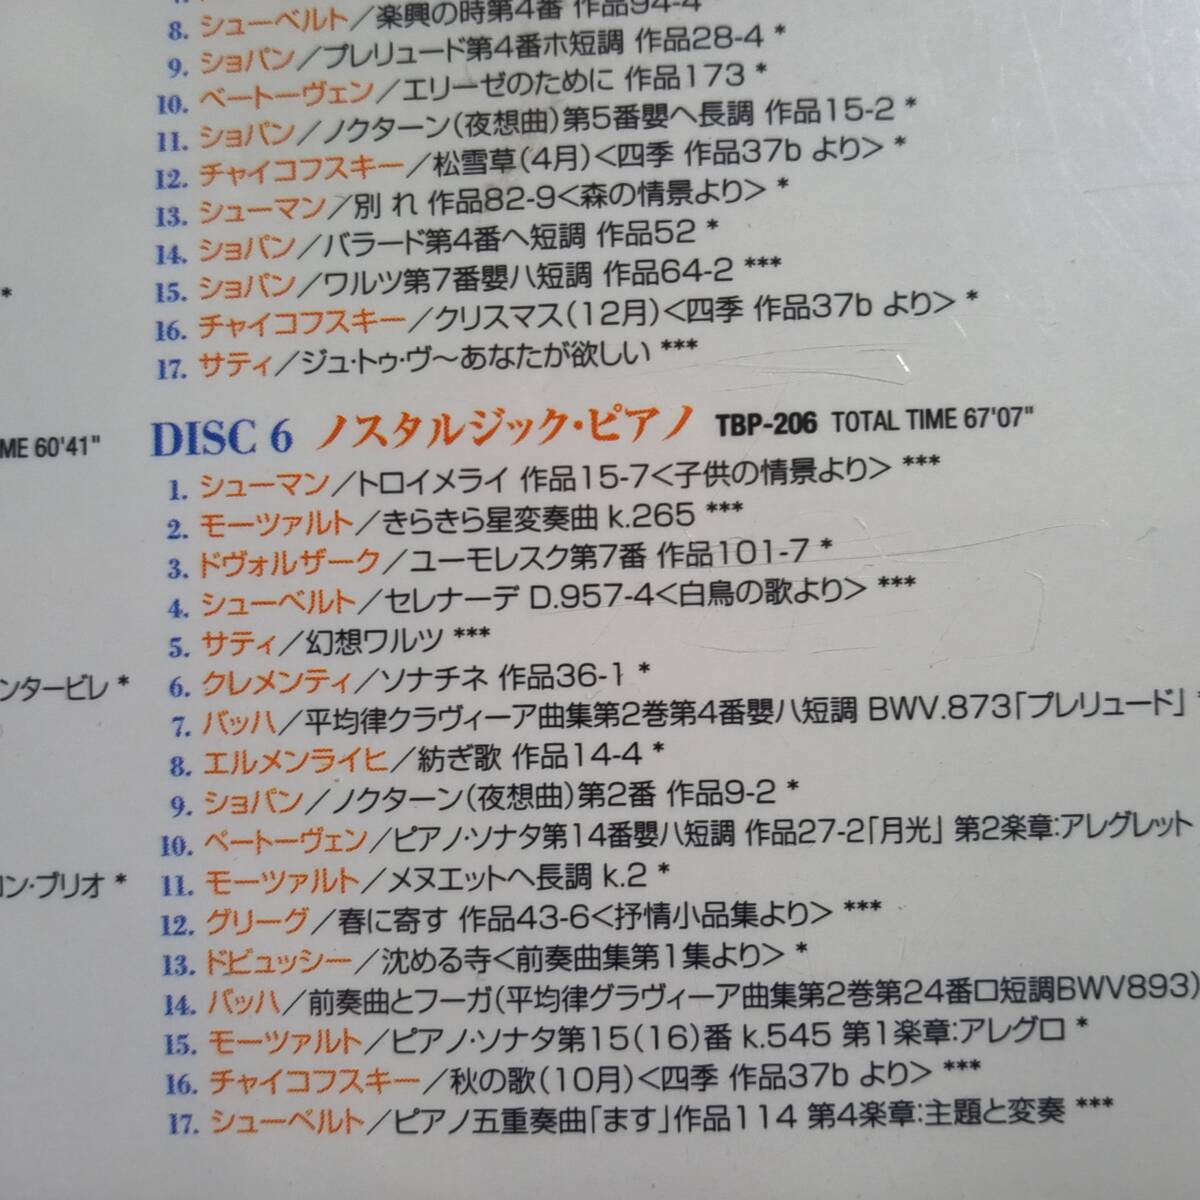 8. シューベルト／楽興の時第4番 作品94-4
9. ショパン／プレリュード第4番ホ短調 作品28-4 *
10. ベートーヴェン／エリーゼのために 作品173 *
11. ショパン／ノクターン(夜想曲)第5番嬰ヘ長調 作品15-2 *
12. チャイコフスキー／松雪草(4月)<四季 作品37b より> *
13. シューマン／別 れ 作品82-9<森の情景より> *
14. ショパン／バラード第4番ヘ短調 作品52 *
15. ショパン／ワルツ第7番嬰ハ短調 作品64-2 ***
*
16. チャイコフスキー／クリスマス(12月)<四季 作品37b より> *
17. サティ／ジュ・トゥ・ヴ〜あなたが欲しい ***
ME 60'41"
DISC 6 ノスタルジック・ピアノ TBP-206 TOTAL TIME 67'07"
1. シューマン／トロイメライ 作品15-7<子供の情景より> ***
2. モーツァルト／きらきら星変奏曲 k.265 ***
3. ドヴォルザーク／ユーモレスク第7番 作品101-7 *
4. シューベルト／セレナーデ D.957-4<白鳥の歌より> ***
5. サティ／幻想ワルツ ***
ンタービレ *
6. クレメンティ／ソナチネ 作品36-1 *
7. バッハ／平均律クラヴィーア曲集第2巻第4番嬰ハ短調 BWV.873「プレリュード」 *
8. エルメンライヒ／紡ぎ歌 作品14-4 *
9. ショパン／ノクターン(夜想曲)第2番 作品9-2 *
10. ベートーヴェン／ピアノ・ソナタ第14番嬰ハ短調 作品27-2「月光」 第2楽章:アレグレット
コン・ブリオ *
11. モーツァルト／メヌエットヘ長調 k.2 *
12. グリーグ／春に寄す 作品43-6<抒情小品集より> ***
13. ドビュッシー／沈める寺<前奏曲集第1集より> *
14. バッハ／前奏曲とフーガ(平均律グラヴィーア曲集第2巻第24番ロ短調BWV893)
15. モーツァルト／ピアノ・ソナタ第15(16)番 k.545 第1楽章:アレグロ *
16. チャイコフスキー／秋の歌(10月)<四季 作品37b より> ***
17. シューベルト／ピアノ五重奏曲「ます」作品114 第4楽章:主題と変奏 ***